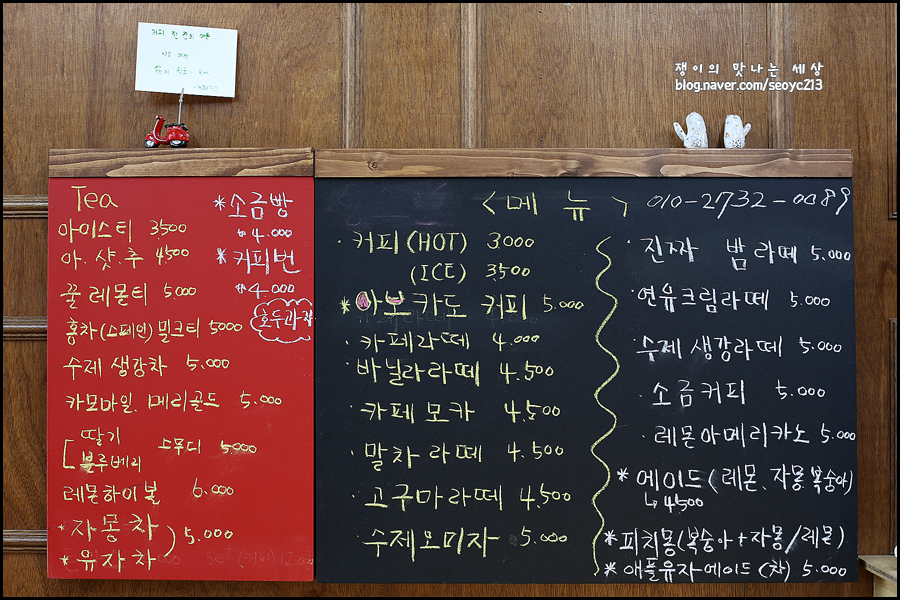 커피 한 잔의 여유
쟁이의 맛나는 세상
blog.naver.com/seoyc213
Tea
아이스티 3500
아.샷.추 4500
꿀레몬티 5.000
홍차(스페인)밀크티 5000
수제 생강차 5.000
카모마일. 메리골드 5.000
딸기
블루베리
스무디 5.000
레몬하이볼 6.000
*자몽차
*유자차
5.000
*소금빵
4.000
*커피번
4.000
호두과자
<메뉴> 010-2732-0089
·커피(HOT) 3.000
(ICE) 3.500
*아보카도 커피 5.000
·카페라떼 4.000
·바닐라라떼 4.500
·카페모카 4.500
·말차라떼 4.500
·고구마라떼 4.500
·수제오미자 5.000
·진짜 밤라떼 5.000
·연유크림라떼 5.000
·수제생강라떼 5.000
·소금커피 5.000
·레몬아메리카노 5.000
*에이드(레몬.자몽.복숭아)
↳4500
*피치몽(복숭아+자몽/레몬)
*애플유자에이드(차) 5.000